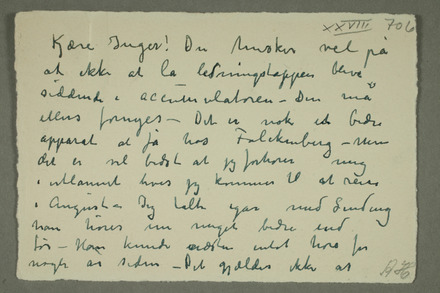 XXVIII 706
Kjære Inger! Du husker vel på
at ikke at la ledningstappen blive
siddende i accumulatoren – Den må
ellers fornyes – Det er nok et bedre
apparat at få hos Falckenberg – men
det er vel bedst at jeg forhører mig
i utlannet hvis jeg kommer til at reise
i August – Jeg talte igår med Sinding
han hører nu meget bedre end
før – Han kunde næsten intet høre for
nogle år siden – Det gjælder ikke at